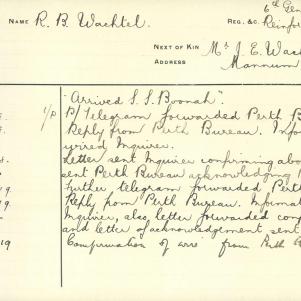 6th Gen
NAME R. B. Wachtel.
REG. &C. Reinfor
NEXT OF KIN Mr J. E. Wac
ADDRESS Mannum
"Arrived S. S. Boonah".
B/Telegram forwarded Perth B
Reply from Perth Bureau. Info
wired Inquirer.
Letter sent Inquirer confirming abo
sent Perth Bureau acknowledging
Further telegram forwarded, Pert
19. Reply from Perth Bureau. Informat
9 Inquirer, also, letter forwarded con
and letter of acknowledgement sent
19 Confirmation of wire from Perth